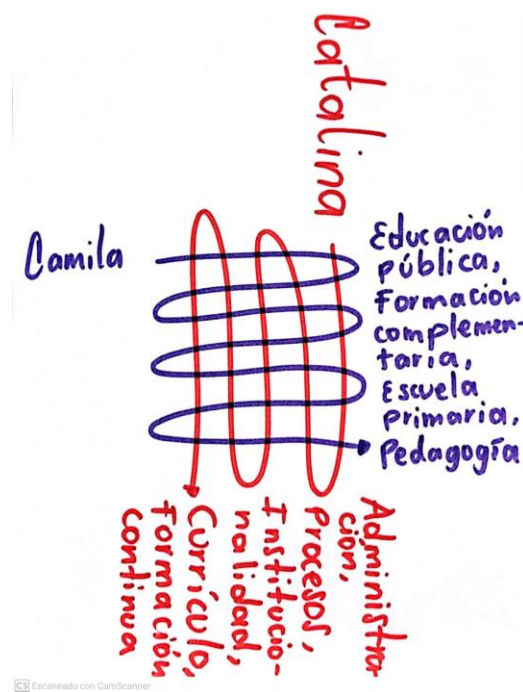 Catalina
Camila
Educación
pública,
Formación
complemen-
taria,
Escuela
primaria,
Pedagogía
Administra
ción,
Procesos,
Institucio-
nalidad,
Currículo,
Formación
continua
CS Escaneado con CamScanner